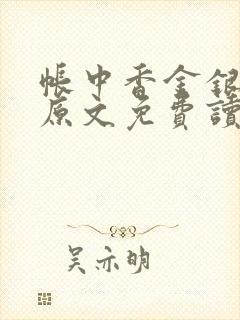 帳中香金銀
原文免費讀
吴亦明